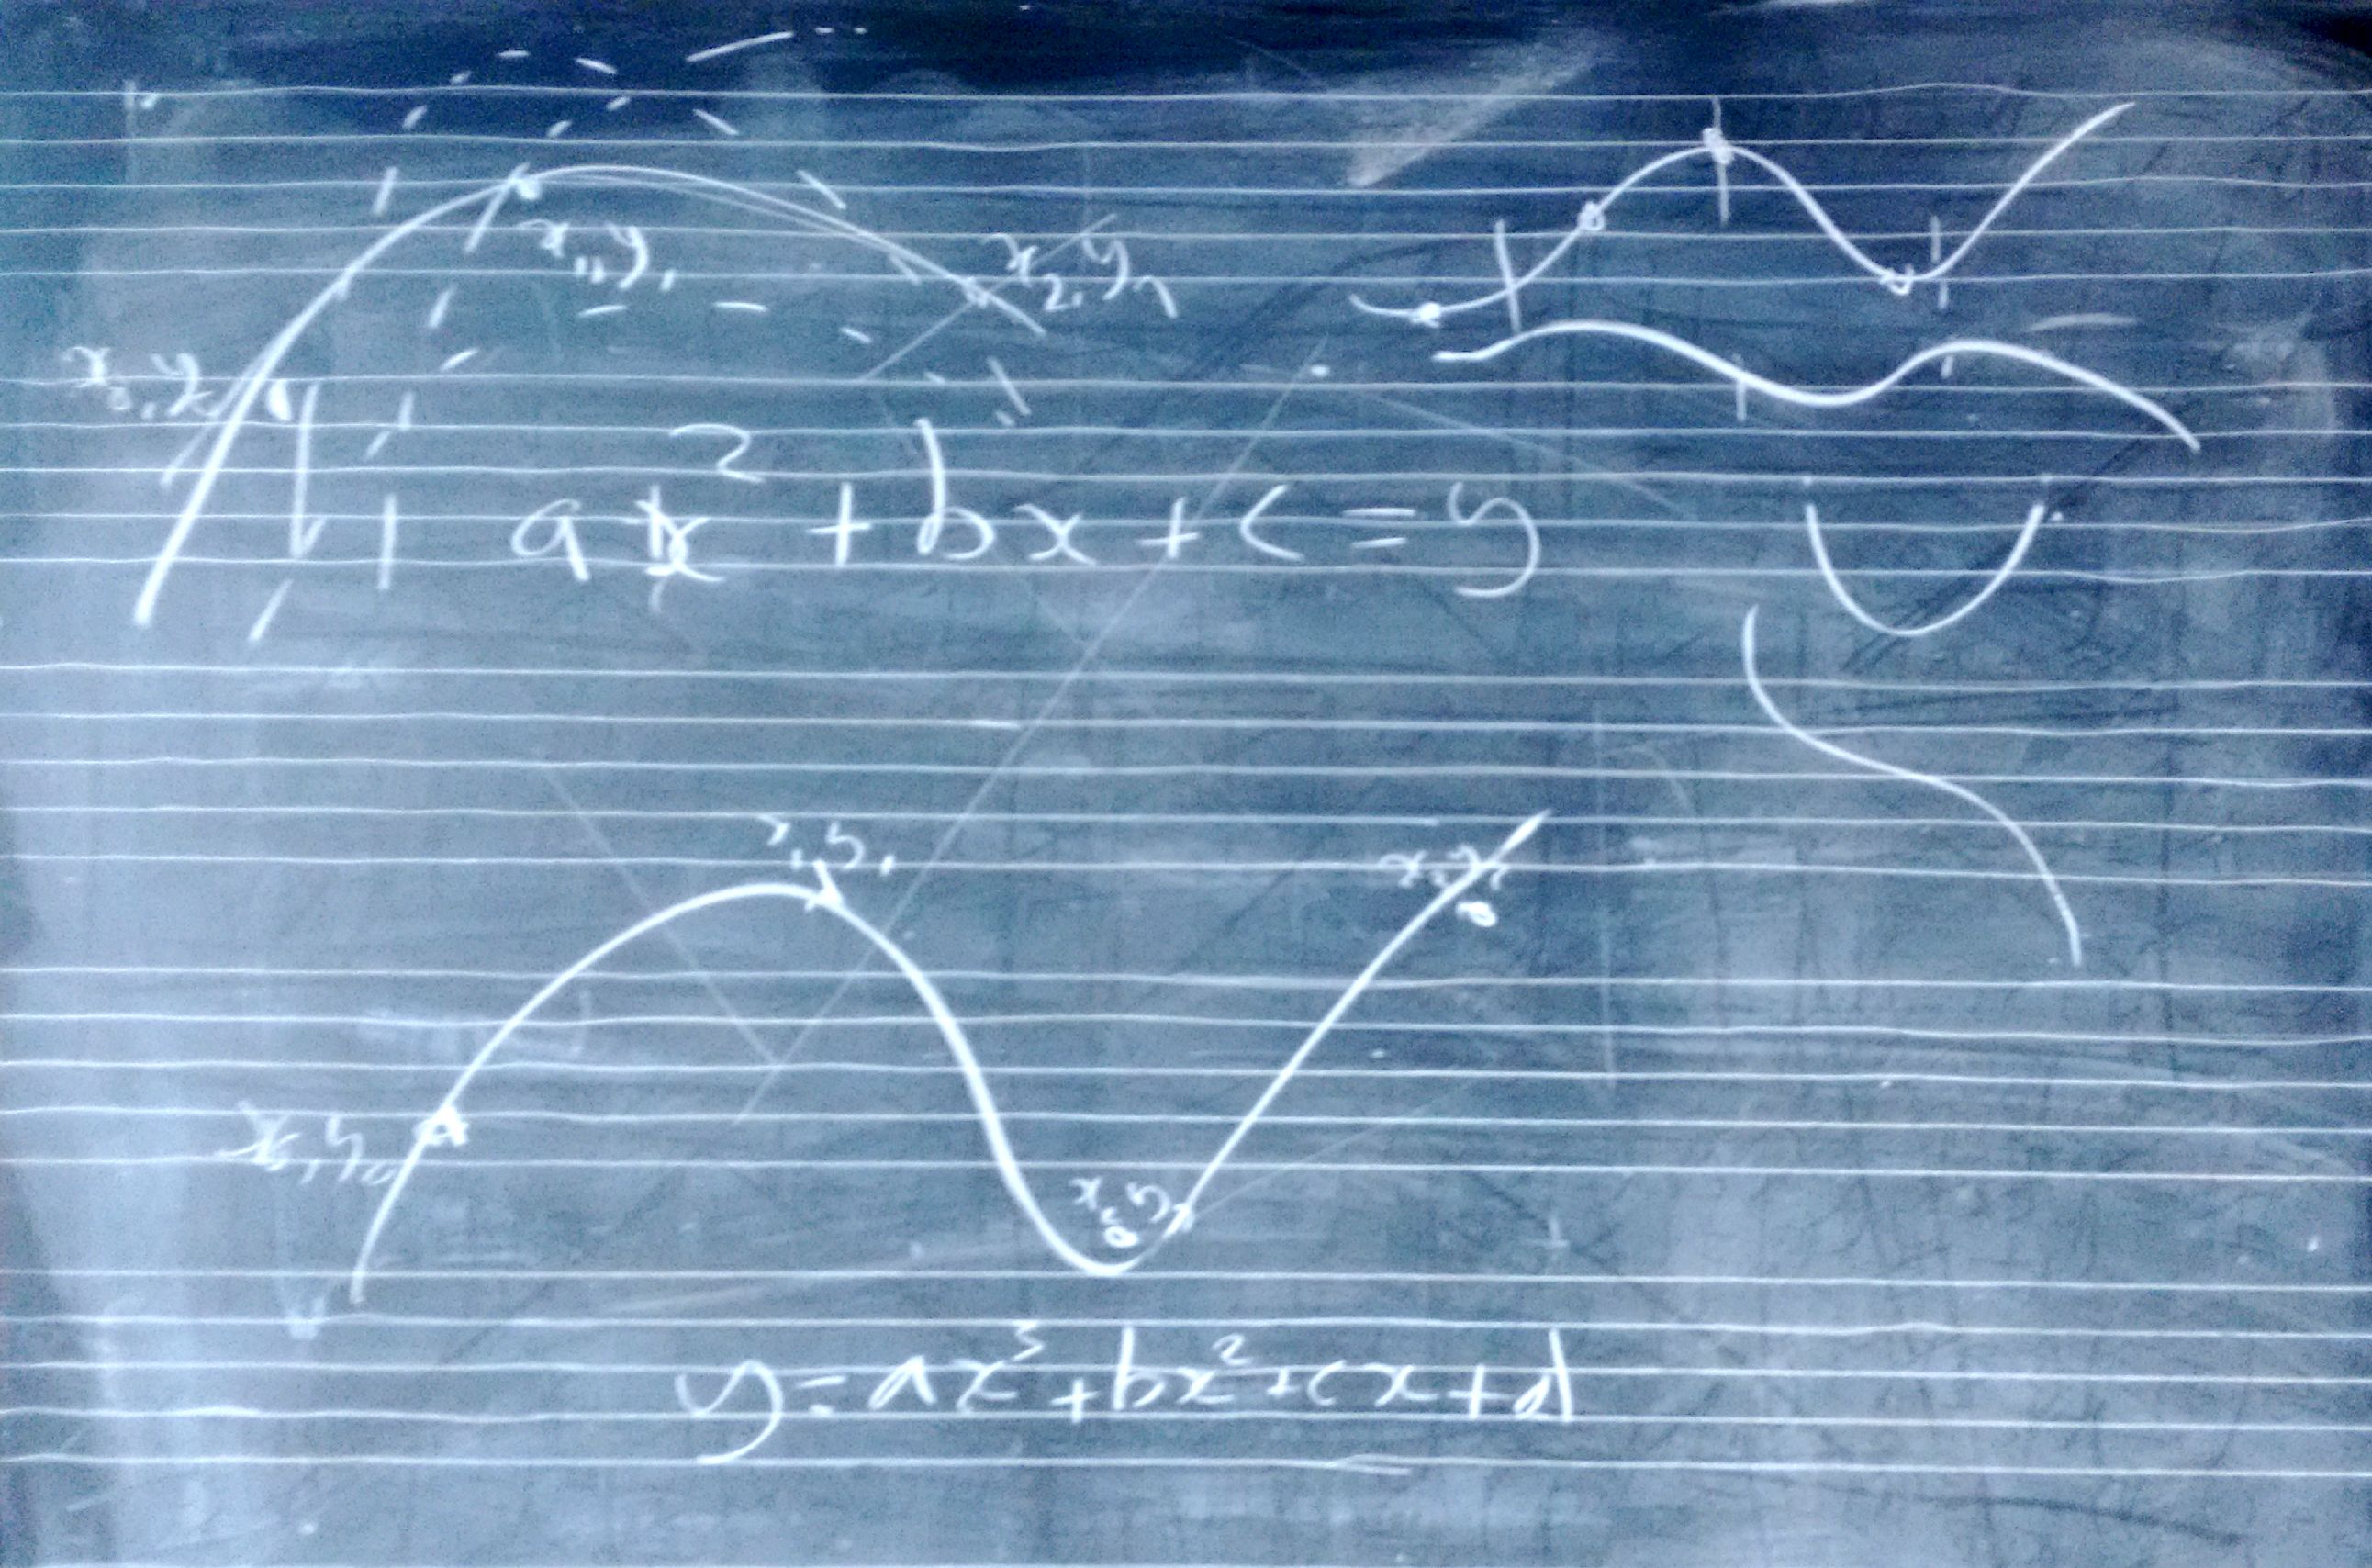 x₁, y₁
x₂, y₂
x₀, y₀
ax² + bx + c = y
x₁, y₁
x₀, y₀
y = ax³ + bx² + cx + d